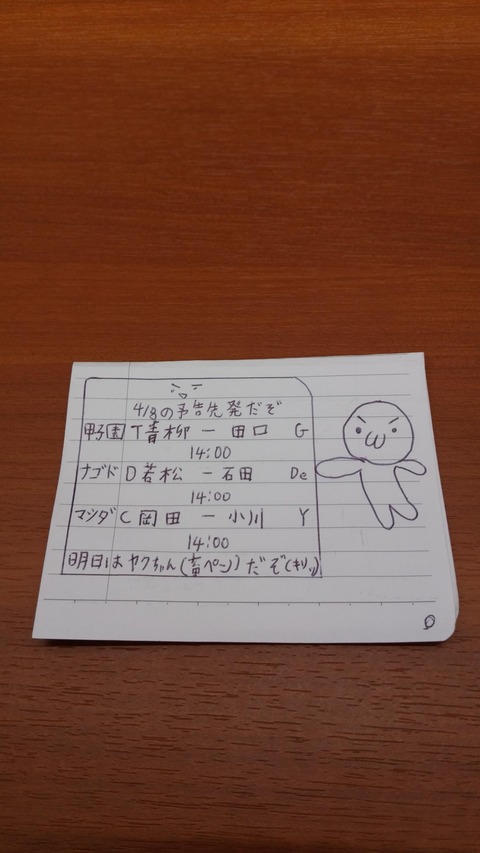 4/8の予告先発だぞ
甲子園 T 青柳 ー 田口 G
14:00
ナゴド D 若松 ー 石田 De
14:00
マツダ C 岡田 ー 小川 Y
14:00
明日はヤクちゃん(畜ペン)だぞ(キリッ)